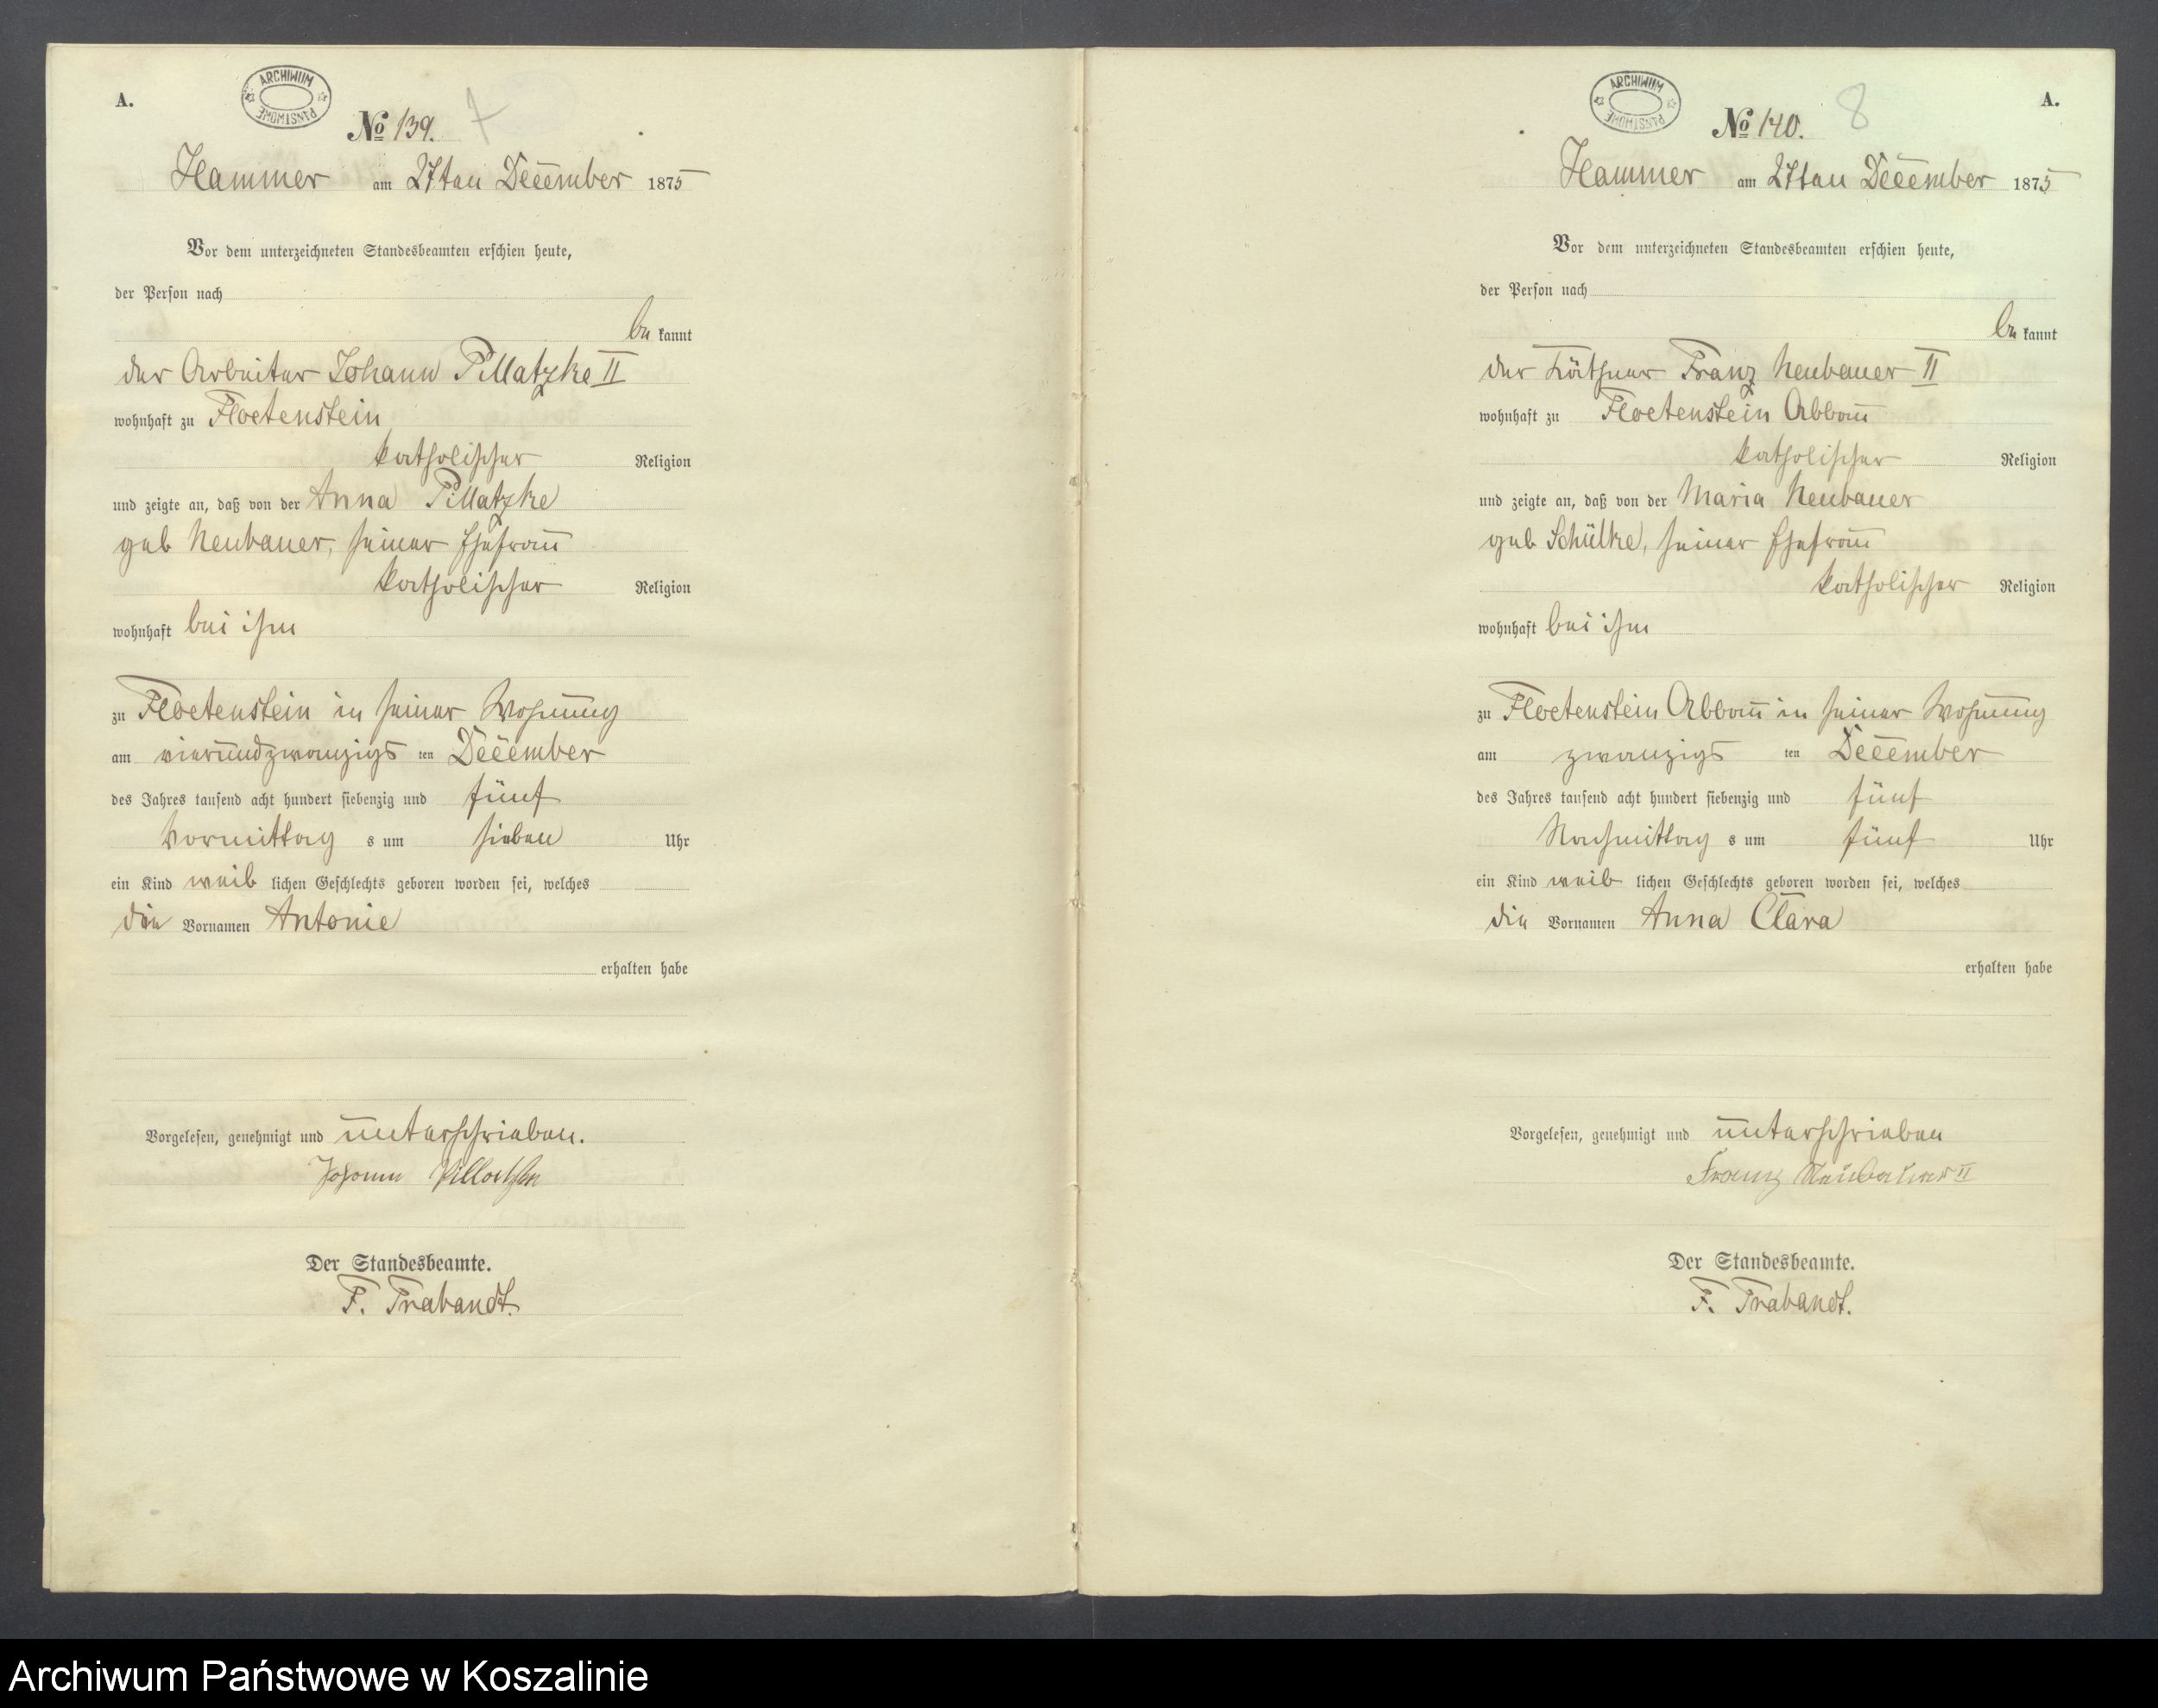 A.
ARCHIWUM PAŃSTWOWE
No 139. 7
Hammer am 27ten December 1875
Vor dem unterzeichneten Standesbeamten erschien heute,
der Person nach
be kannt
der Arbeiter Johann Pillatzke II
wohnhaft zu Floetenstein
katholischer Religion
und zeigte an, daß von der Anna Pillatzke
geb Neubauer, seiner Ehefrau
katholischer Religion
wohnhaft bei ihm
zu Floetenstein in seiner Wohnung
am vierundzwanzigs ten December
des Jahres tausend acht hundert siebenzig und fünf
Vormittag s um sieben Uhr
ein Kind weib lichen Geschlechts geboren worden sei, welches
die Vornamen Antonie
erhalten habe
Vorgelesen, genehmigt und unterschrieben.
Johann Pillatzke
Der Standesbeamte.
F. Trabandt.
A.
ARCHIWUM PAŃSTWOWE
No 140. 8
Hammer am 27ten December 1875
Vor dem unterzeichneten Standesbeamten erschien heute,
der Person nach
be kannt
der Käthner Franz Neubauer II
wohnhaft zu Floetenstein Abbau
katholischer Religion
und zeigte an, daß von der Maria Neubauer
geb Schülke, seiner Ehefrau
katholischer Religion
wohnhaft bei ihm
zu Floetenstein Abbau in seiner Wohnung
am zwanzigs ten December
des Jahres tausend acht hundert siebenzig und fünf
Nachmittag s um fünf Uhr
ein Kind weib lichen Geschlechts geboren worden sei, welches
die Vornamen Anna Clara
erhalten habe
Vorgelesen, genehmigt und unterschrieben
Franz Neubauer II
Der Standesbeamte.
F. Trabandt.
Archiwum Państwowe w Koszalinie